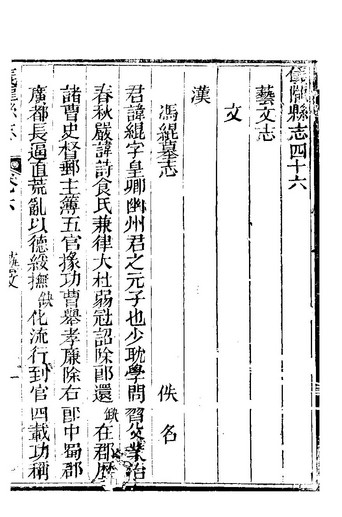 儀隴縣志四十六
藝文志
文
漢
馮緄墓志 佚名
君諱緄字皇卿幽州君之元子也少耽學問習父業治
春秋嚴諱詩食氏兼律大杜弱冠詔除郎還缺在郡歷
諸曹史督郵主簿五官掾功曹舉孝廉除右郎中蜀郡
廣都長遇直荒亂以德綏撫缺化流行到官四載功稱
藝文